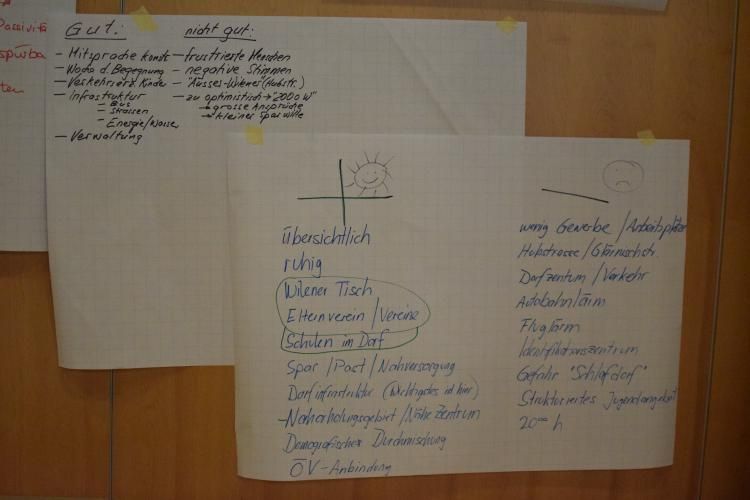 Passivitä
spürba
ten
Gut:
- Mitsprache Konds
- Woche d. Begegnung
- Verkehrserz. Kinder
- Infrastruktur
- Bus
- Strassen
- Energie/Wasser
- Verwaltung
nicht gut:
- frustrierte Menschen
- negative Stimmen
- "Ausses-Wilener" (Hubstr.)
- zu optimistisch → "2000 W"
→ grosse Ansprüche
→ kleiner Sparwille
übersichtlich
ruhig
Wilener Tisch
Elternverein / Vereine
Schulen im Dorf
Spar / Post / Nahversorgung
Dorfinfrastruktur (Wichtigstes ist hier)
- Naherholungsgebiet / Nähe Zentrum
Demografische Durchmischung
ÖV - Anbindung
wenig Gewerbe / Arbeitsplätze
Hubstrasse / Glärnischstr.
Dorfzentum / Verkehr
Autobahnlärm
Fluglärm
Identifikationszentrum
Gefahr "Schlafdorf"
Strukturiertes Jugendangebot
20⁰⁰ h